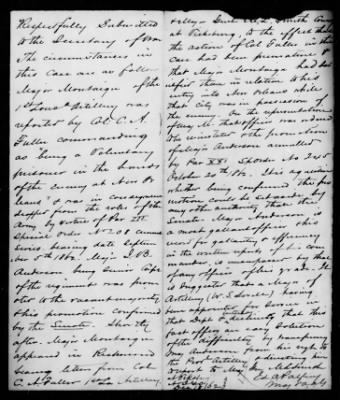 Respectfully Submitted
to the Secretary of War
The circumstances in
this case are as follow
Major Montaigne of the
1st Louisa Artillery was
reported by Col. C. A.
Fuller commanding
as being a Voluntary
prisoner in the hands
of the enemy at New Or
leans & was in consequence
dropped from the rolls of the
Army by virtue of Par III
Special Order No 208 Current
Series bearing date Septem
ber 5th 1862. Maj J. B.
Anderson being Senior Capt
of the regiment was promo
ted to the vacant majority
This promotion confirmed
by the Senate. Shortly
after Major Montaigne
appeared in Richmond
bearing letter from Col
C. A. Fuller 1st La Artillery
M. L. Smith Comdg
at Vicksburg, to the effect that
the action of Col Fuller in the
case had been premature &
that Major Montaigne had
in relation to his
entry into New Orleans while
that city was in possession of
the enemy. On the representation
of that officer was ordered
reinstated & the promotion
of Major Anderson annulled
by Par XXI Sp Order No 245
October 20th 1862. It is a question
whether being confirmed this pro
motion could be set aside by
any other authority than the
Senate. Major Anderson is
a most gallant officer. His
record for gallantry & efficiency
in the written reports of his com
mander, is unsurpassed by that
of any officer of his grade. It
is suggested that a Major of
Artillery
having
been appointed for Service in
that Dept &
fact offers an easy solution
of the difficulty by transferring
Maj Anderson from his regt to
the Provl Artillery & directing him
report to Maj